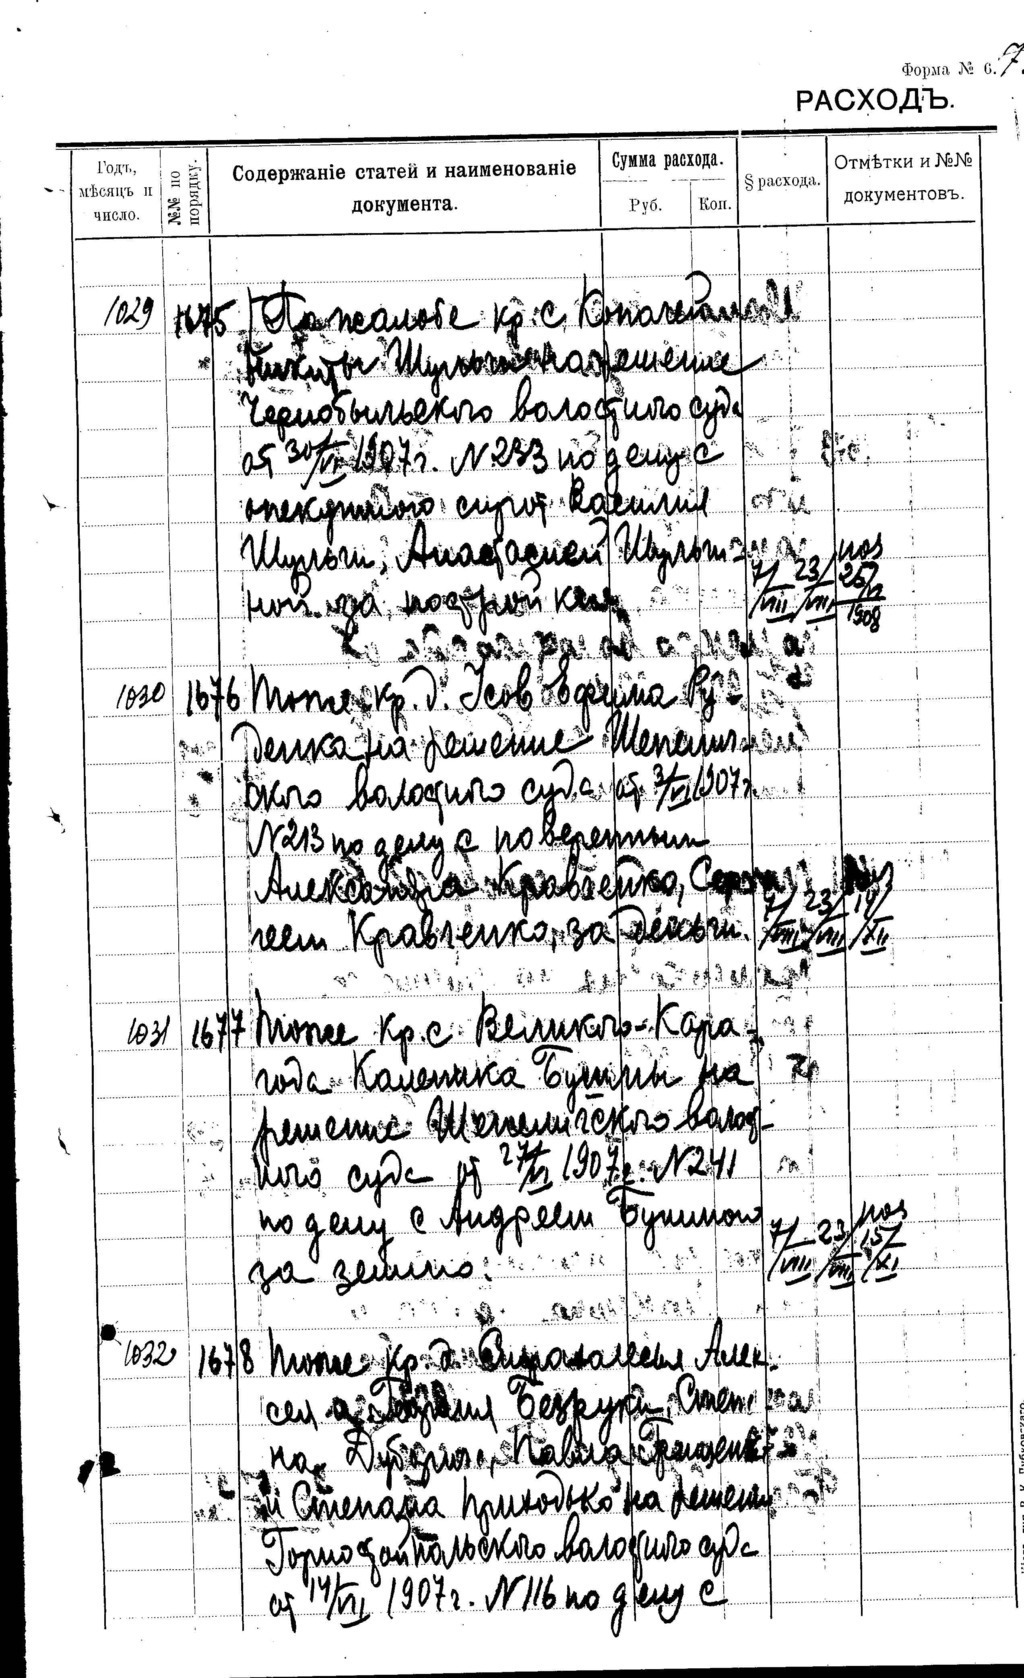 Форма № 6. 7.
РАСХОДЪ.
Годъ, мѣсяцъ и число.
№№ по порядку.
Содержаніе статей и наименованіе документа.
Сумма расхода.
Руб. Коп.
§ расхода.
Отмѣтки и №№ документовъ.
1029 1675 По жалобе кр. с.
Никиты Шульги на решение
Чернобыльского волостного суда
от 30/VI 1907 г. N 233 по делу с
опекуншою сирот Василия
Шульги, Анастасией Шульги-
ной за постройки 7/VIII 23/VIII 25/VI 1908
1030 1676 Тоже кр. д. Усов Ефима Ру-
денка на решение Шепелич-
ского волостного суда от 3/VI 1907 г.
N 213 по делу с поверенным
Александра Кравченко, Сер
геем Кравченко, за деньги. 7/VIII 23/VIII 19/XII
1031 1677 Тоже кр. с. Великого-Кара-
года Каленика на
решение Шепеличского волост-
ного суда от 27/VI 1907 г. N 241
по делу с Андреем
за землю. 7/VIII 23/VIII 15/XI
1032 1678 Тоже кр. д. Страхолесья Алек-
сея и Безруки, Степа
на Павла
и Степана Приходько на решение
Горностайпольского волостного суда
от 14/VII 1907 г. N 116 по делу с